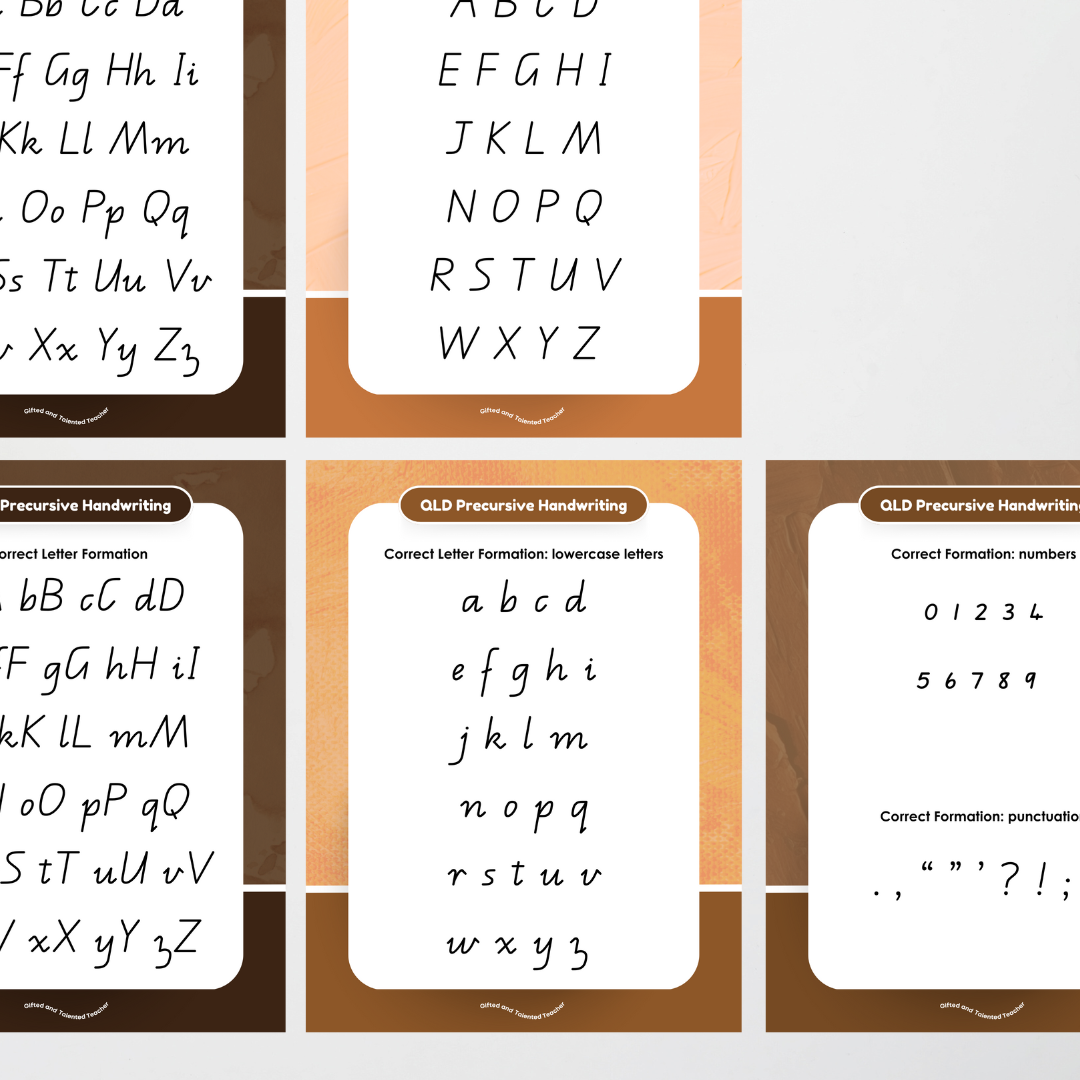 Bb Cc Dd
Ff Gg Hh Ii
Kk Ll Mm
Oo Pp Qq
Ss Tt Uu Vv
Xx Yy Zz
Gifted and Talented Teacher
A B C D
E F G H I
J K L M
N O P Q
R S T U V
W X Y Z
Gifted and Talented Teacher
Precursive Handwriting
Letter Formation
bB cC dD
F gG hH iI
kK lL mM
oO pP qQ
S tT uU vV
xX yY zZ
Gifted and Talented Teacher
QLD Precursive Handwriting
Correct Letter Formation: lowercase letters
a b c d
e f g h i
j k l m
n o p q
r s t u v
w x y z
Gifted and Talented Teacher
QLD Precursive Handwriting
Correct Formation: numbers
0 1 2 3 4
5 6 7 8 9
Correct Formation: punctuation
. , “ ” ’ ? ! ;
Gifted and Talented Teacher